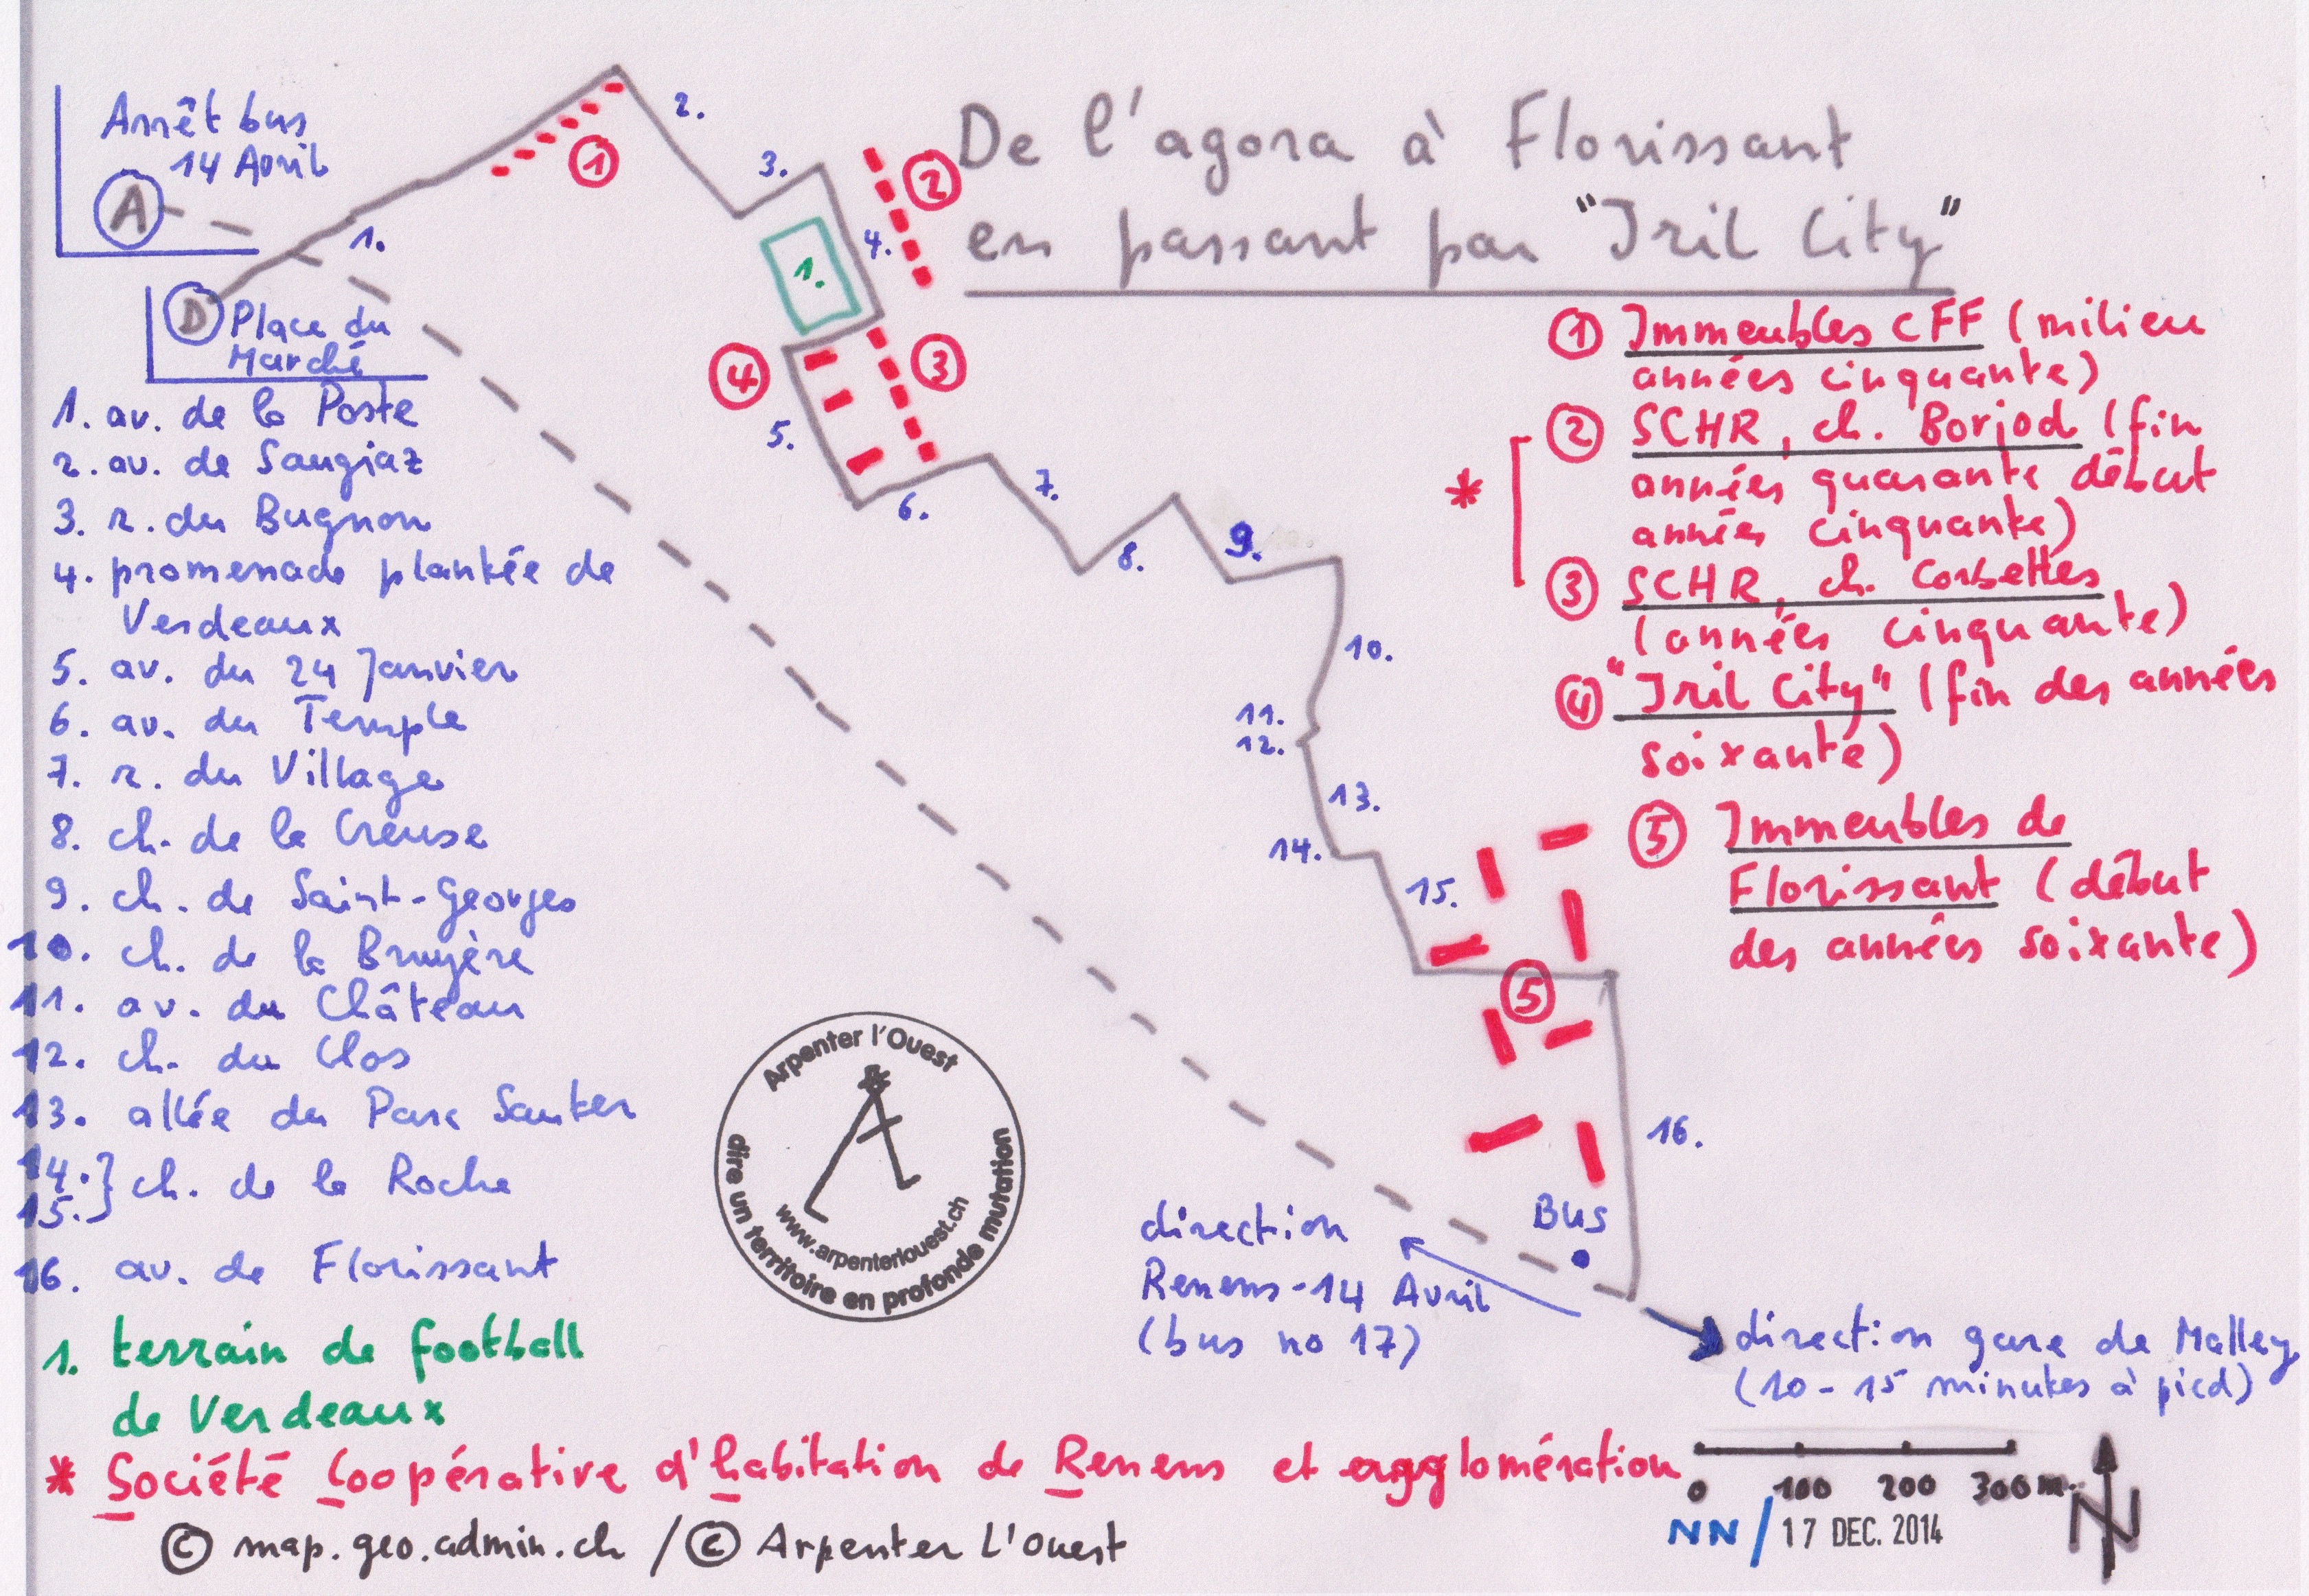 De l'agora à Florissant
en passant par "Iril City"
Arrêt bus
14 Avril
A
D
Place du
Marché
1. av. de la Poste
2. av. de Saugiaz
3. r. du Bugnon
4. promenade plantée de
Verdeaux
5. av. du 24 Janvier
6. av. du Temple
7. r. du Village
8. ch. de la Creuse
9. ch. de Saint-Georges
10. ch. de la Bruyère
11. av. du Château
12. ch. du Clos
13. allée du Parc Sauter
14. } ch. de la Roche
15.
16. av. de Florissant
1. terrain de football
de Verdeaux
1.
2.
3.
4.
5.
6.
7.
8.
9.
10.
11.
12.
13.
14.
15.
16.
1.
1
2
3
4
5
1 Immeubles CFF (milieu
années cinquante)
* 2 SCHR, ch. Borjod (fin
années quarante début
années cinquante)
3 SCHR, ch. Corbettes
(années cinquante)
4 "Iril City" (fin des années
soixante)
5 Immeubles de
Florissant (début
des années soixante)
Arpenter l'Ouest
www.arpenterlouest.ch
dire un territoire en profonde mutation
Bus
direction
Renens-14 Avril
(bus no 17)
direction gare de Malley
(10-15 minutes à pied)
* Société Coopérative d'habitation de Renens et agglomération
0 100 200 300 m.
NN / 17 DEC. 2014
N
© map.geo.admin.ch / © Arpenter L'Ouest